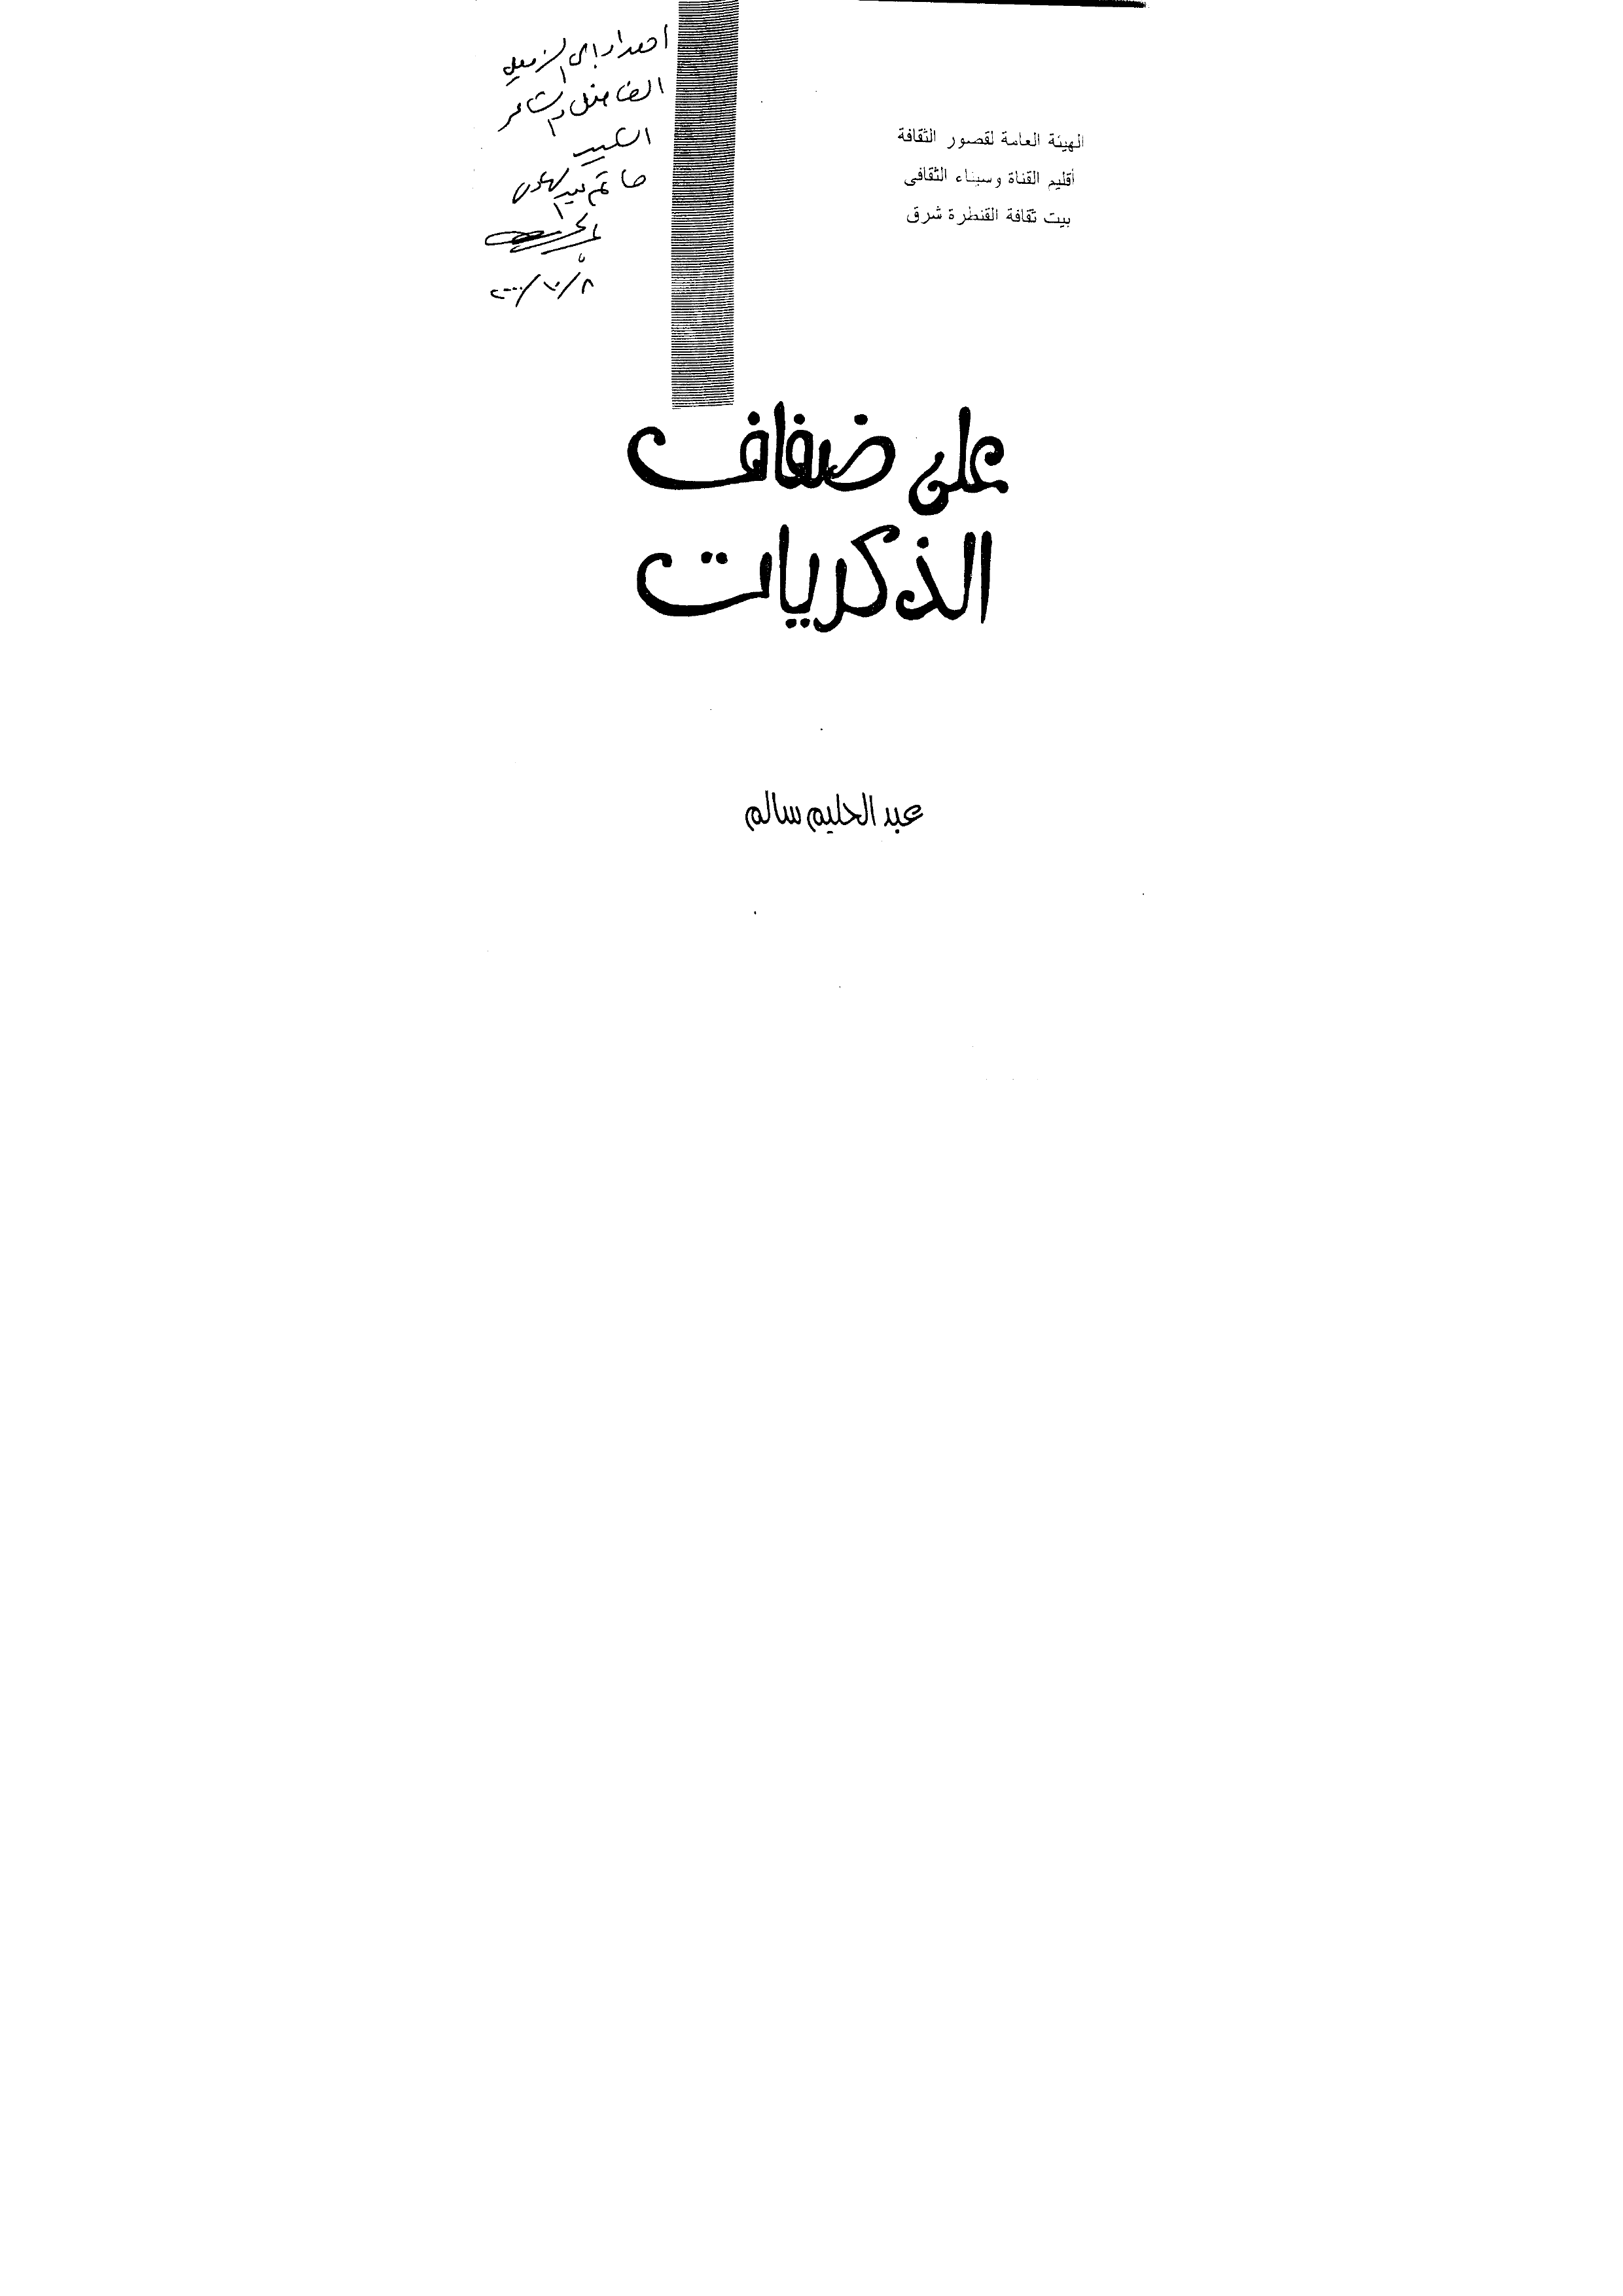 الهيئة العامة لقصور الثقافة
أقليم القناة وسيناء الثقافى
بيت ثقافة القنطرة شرق
الزميل
الفاضل والشاعر
الكبير
حاتم عبد الهادى
٨/١٠/٢٠٠٠
على ضفاف
الذكريات
عبد الحليم سالم